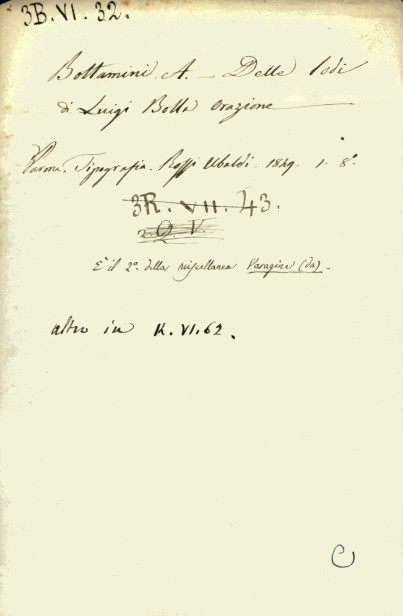 3B.VI.32.
Bottamini A. — Delle lodi
di Luigi Bolla orazione
Parma. Tipografia. Rossi Ubaldi. 1849. 1. 8°.
3R. VII. 43.
2. Q. V.
È il 2°. della miscellanea Varagine (da) -
altro in K.VI.62.
C